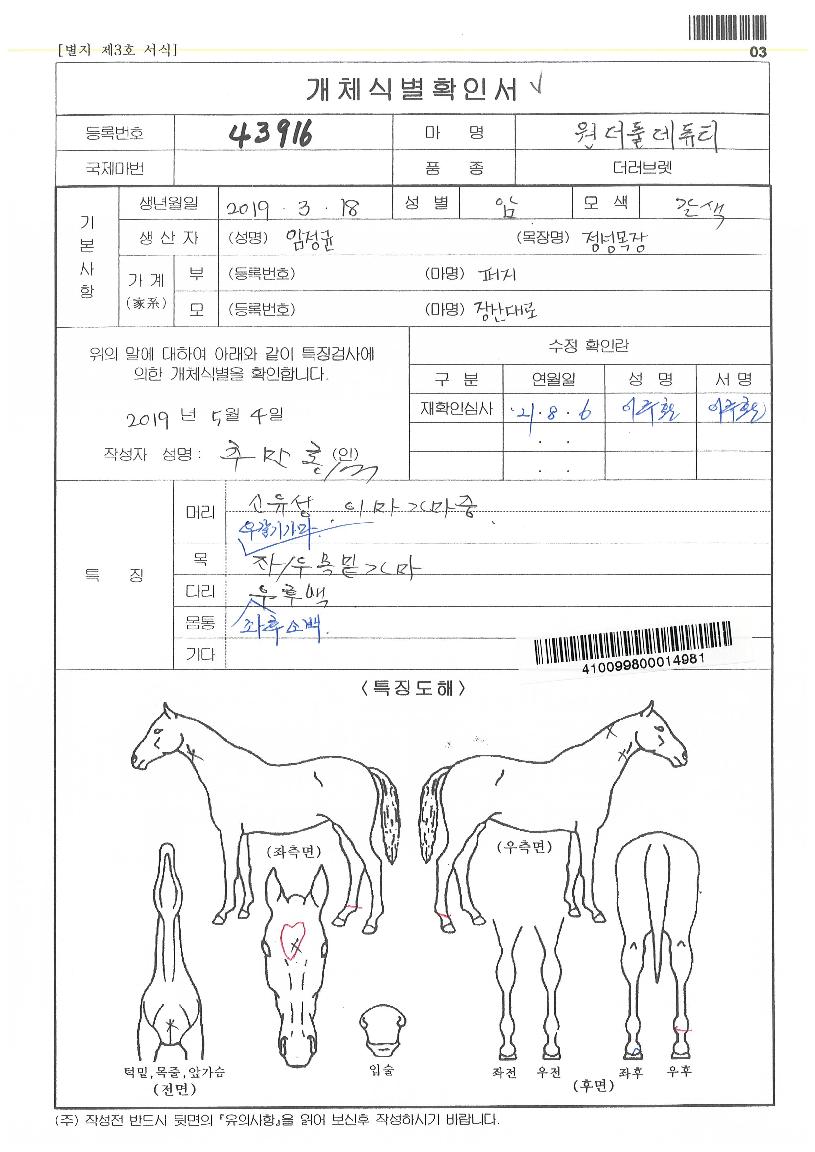 [별지 제3호 서식]
03
개체식별확인서 √
등록번호 43916 마 명 원더풀데퓨티
국제마번 품 종 더러브렛
기본사항
생년월일 2019 . 3 . 18 성 별 암 모 색 갈색
생 산 자 (성명) 임정균 (목장명) 정성목장
가 계 (家系)
부 (등록번호) (마명) 퍼지
모 (등록번호) (마명) 장난대로
위의 말에 대하여 아래와 같이 특징검사에
의한 개체식별을 확인합니다.
2019 년 5월 4일
작성자 성명 : (인)
수정 확인란
구 분 연월일 성 명 서 명
재확인심사 '21. 8. 6
. .
. .
특 징
머리 소유성 이마가마중
우갈기가마.
목 좌/우목밑가마
다리 우후백
몸통 좌후소백.
기타
410099800014981
<특징도해>
(좌측면)
(우측면)
턱밑,목줄,앞가슴
(전면)
입술
좌전 우전 좌후 우후
(후면)
(주) 작성전 반드시 뒷면의 『유의사항』을 읽어 보신후 작성하시기 바랍니다.